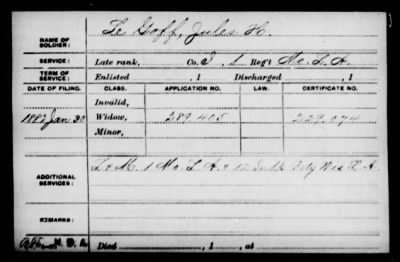 NAME OF SOLDIER: Le Goff, Jules H.
SERVICE: Late rank, Co. I, 1 Reg't Mo. L. A.
TERM OF SERVICE: Enlisted , 1 Discharged , 1
DATE OF FILING. CLASS. APPLICATION NO. LAW. CERTIFICATE NO.
Invalid,
1882 Jan 30 Widow, 289.405 229.074
Minor,
ADDITIONAL SERVICES: L & M. 1 Mo. L. A. & 12 Wis. L. A.
REMARKS:
N. B. A.
Died , 1 , at